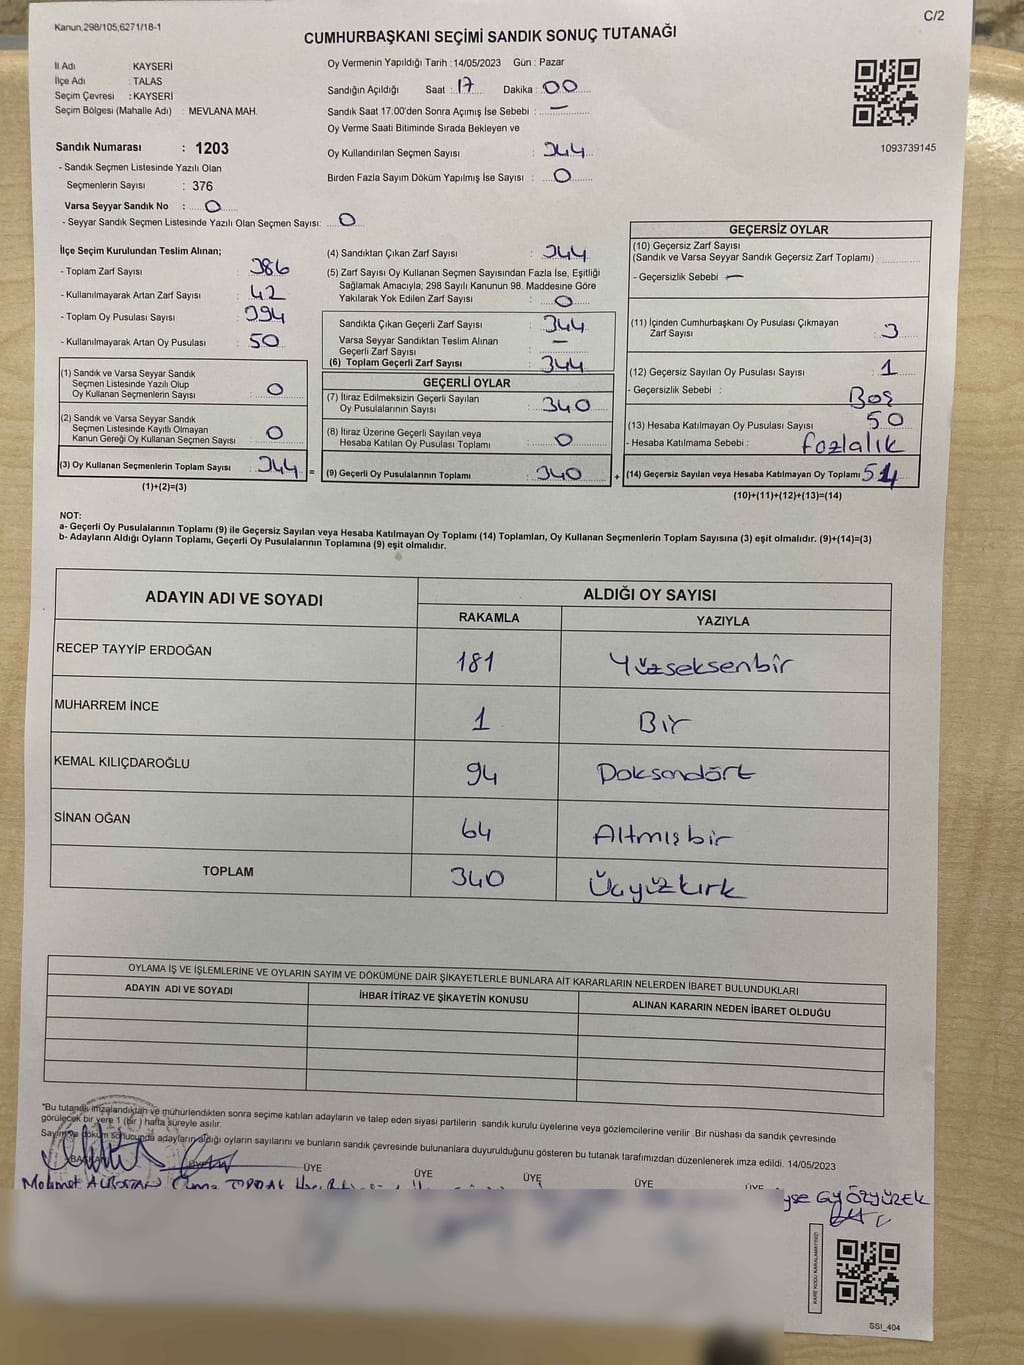 Kanun.298/105,6271/18-1
C/2
CUMHURBAŞKANI SEÇİMİ SANDIK SONUÇ TUTANAĞI
İl Adı : KAYSERİ
İlçe Adı : TALAS
Seçim Çevresi : KAYSERİ
Seçim Bölgesi (Mahalle Adı) : MEVLANA MAH.
Sandık Numarası : 1203
- Sandık Seçmen Listesinde Yazılı Olan
Seçmenlerin Sayısı : 376
Varsa Seyyar Sandık No : 0
- Seyyar Sandık Seçmen Listesinde Yazılı Olan Seçmen Sayısı: 0
Oy Vermenin Yapıldığı Tarih : 14/05/2023 Gün : Pazar
Sandığın Açıldığı Saat : 17 Dakika : 00
Sandık Saat 17.00'den Sonra Açımış İse Sebebi : —
Oy Verme Saati Bitiminde Sırada Bekleyen ve
Oy Kullandırılan Seçmen Sayısı : 344
Birden Fazla Sayım Döküm Yapılmış İse Sayısı : 0
1093739145
İlçe Seçim Kurulundan Teslim Alınan;
- Toplam Zarf Sayısı : 386
- Kullanılmayarak Artan Zarf Sayısı : 42
- Toplam Oy Pusulası Sayısı : 394
- Kullanılmayarak Artan Oy Pusulası : 50
(1) Sandık ve Varsa Seyyar Sandık
Seçmen Listesinde Yazılı Olup
Oy Kullanan Seçmenlerin Sayısı : 0
(2) Sandık ve Varsa Seyyar Sandık
Seçmen Listesinde Kayıtlı Olmayan
Kanun Gereği Oy Kullanan Seçmen Sayısı : 0
(3) Oy Kullanan Seçmenlerin Toplam Sayısı : 344 =
(1)+(2)=(3)
(4) Sandıktan Çıkan Zarf Sayısı : 344
(5) Zarf Sayısı Oy Kullanan Seçmen Sayısından Fazla İse, Eşitliği
Sağlamak Amacıyla; 298 Sayılı Kanunun 98. Maddesine Göre
Yakılarak Yok Edilen Zarf Sayısı : 0
Sandıkta Çıkan Geçerli Zarf Sayısı : 344
Varsa Seyyar Sandıktan Teslim Alınan
Geçerli Zarf Sayısı : —
(6) Toplam Geçerli Zarf Sayısı : 344
GEÇERLİ OYLAR
(7) İtiraz Edilmeksizin Geçerli Sayılan
Oy Pusulalarının Sayısı : 340
(8) İtiraz Üzerine Geçerli Sayılan veya
Hesaba Katılan Oy Pusulası Toplamı : 0
(9) Geçerli Oy Pusulalarının Toplamı : 340 +
GEÇERSİZ OYLAR
(10) Geçersiz Zarf Sayısı
(Sandık ve Varsa Seyyar Sandık Geçersiz Zarf Toplamı) :
- Geçersizlik Sebebi : —
(11) İçinden Cumhurbaşkanı Oy Pusulası Çıkmayan
Zarf Sayısı : 3
(12) Geçersiz Sayılan Oy Pusulası Sayısı : 1
- Geçersizlik Sebebi : Boş
(13) Hesaba Katılmayan Oy Pusulası Sayısı : 50
- Hesaba Katılmama Sebebi : fazlalık
(14) Geçersiz Sayılan veya Hesaba Katılmayan Oy Toplamı : 54
(10)+(11)+(12)+(13)=(14)
NOT:
a- Geçerli Oy Pusulalarının Toplamı (9) ile Geçersiz Sayılan veya Hesaba Katılmayan Oy Toplamı (14) Toplamları, Oy Kullanan Seçmenlerin Toplam Sayısına (3) eşit olmalıdır. (9)+(14)=(3)
b- Adayların Aldığı Oyların Toplamı, Geçerli Oy Pusulalarının Toplamına (9) eşit olmalıdır.
ADAYIN ADI VE SOYADI
ALDIĞI OY SAYISI
RAKAMLA YAZIYLA
RECEP TAYYİP ERDOĞAN 181 Yüzseksenbir
MUHARREM İNCE 1 Bir
KEMAL KILIÇDAROĞLU 94 Doksandört
SİNAN OĞAN 64 Altmışbir
TOPLAM 340 Üçyüzkırk
OYLAMA İŞ VE İŞLEMLERİNE VE OYLARIN SAYIM VE DÖKÜMÜNE DAİR ŞİKAYETLERLE BUNLARA AİT KARARLARIN NELERDEN İBARET BULUNDUKLARI
ADAYIN ADI VE SOYADI İHBAR İTİRAZ VE ŞİKAYETİN KONUSU ALINAN KARARIN NEDEN İBARET OLDUĞU
*Bu tutanak imzalandıktan ve mühürlendikten sonra seçime katılan adayların ve talep eden siyasi partilerin sandık kurulu üyelerine veya gözlemcilerine verilir .Bir nüshası da sandık çevresinde
görülecek bir yere 1 (bir ) hafta süreyle asılır.
Sayım ve döküm sonucunda adayların aldığı oyların sayılarını ve bunların sandık çevresinde bulunanlara duyurulduğunu gösteren bu tutanak tarafımızdan düzenlenerek imza edildi. 14/05/2023
BAŞKAN ÜYE ÜYE ÜYE ÜYE ÜYE
Mehmet
ÖZYÜREK
KARE KODU KARALAMAYINIZ!
SSI_404